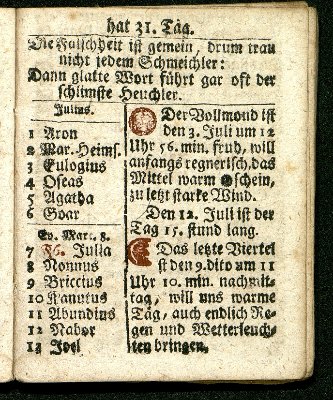 hat 31. Tag.
Die Falschheit ist gemein, drum trau
nicht jedem Schmeichler:
Dann glatte Wort führt gar oft der
schlimste Heuchler.
Julius.
1 Aron
2 Mar. Heims.
3 Eulogius
4 Oseas
5 Agatha
6 Goar
Ev. Mar. 8.
7 Julia
8 Nonnus
9 Briccius
10 Kanutus
11 Abundius
12 Nabor
13 Joel
Der Vollmond ist
den 3. Juli um 12
Uhr 56. min. fruh, will
anfangs regnerisch, das
Mittel warm schein,
zu letzt starke Wind.
Den 12. Juli ist der
Tag 15. stund lang.
Das letzte Viertel
ist den 9. dito um 11
Uhr 10. min. nachmit-
tag, will uns warme
Täg, auch endlich Re-
gen und Wetterleuch-
ten bringen.